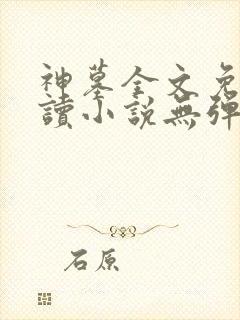 神墓全文免
讀小說無彈
石原